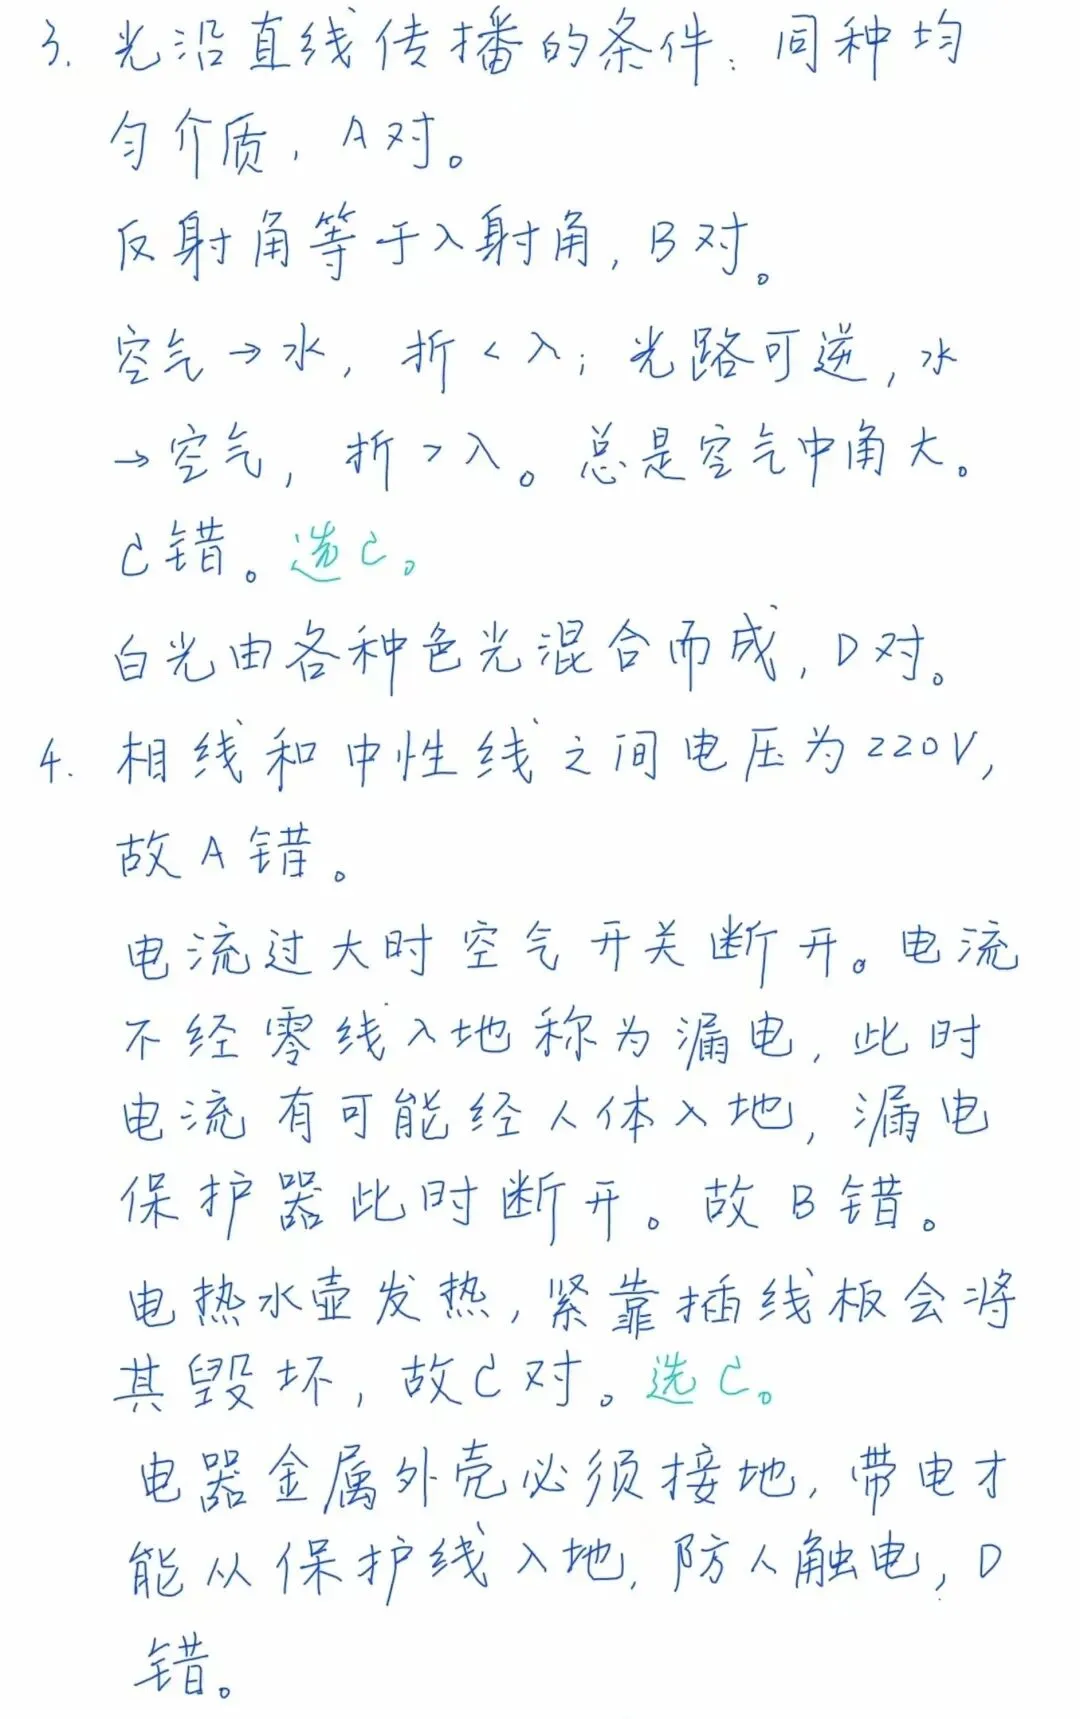 3. 光沿直线传播的条件：同种均
匀介质，A对。
反射角等于入射角，B对。
空气→水，折<入；光路可逆，水
→空气，折>入。总是空气中角大。
C错。选C。
白光由各种色光混合而成，D对。
4. 相线和中性线之间电压为220V，
故A错。
电流过大时空气开关断开。电流
不经零线入地称为漏电，此时
电流有可能经人体入地，漏电
保护器此时断开。故B错。
电热水壶发热，紧靠插线板会将
其毁坏，故C对。选C。
电器金属外壳必须接地，带电才
能从保护线入地，防人触电，D
错。